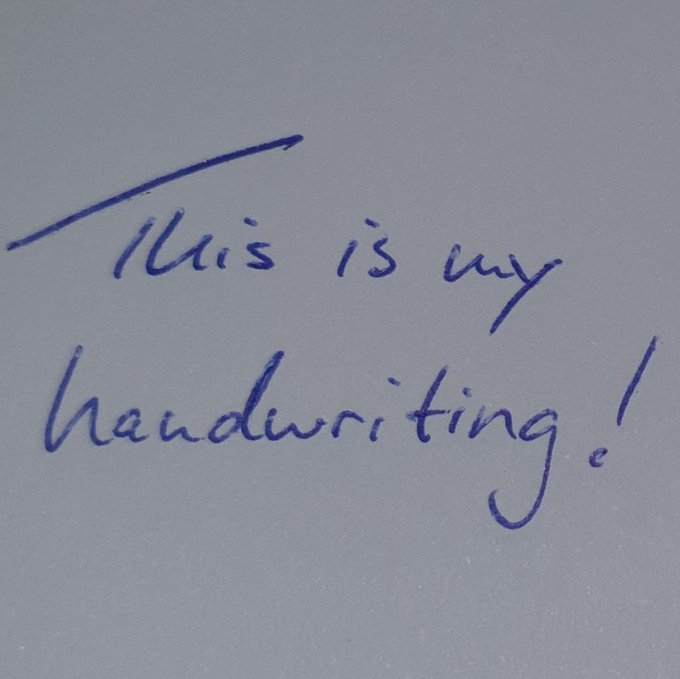 This is my
handwriting!